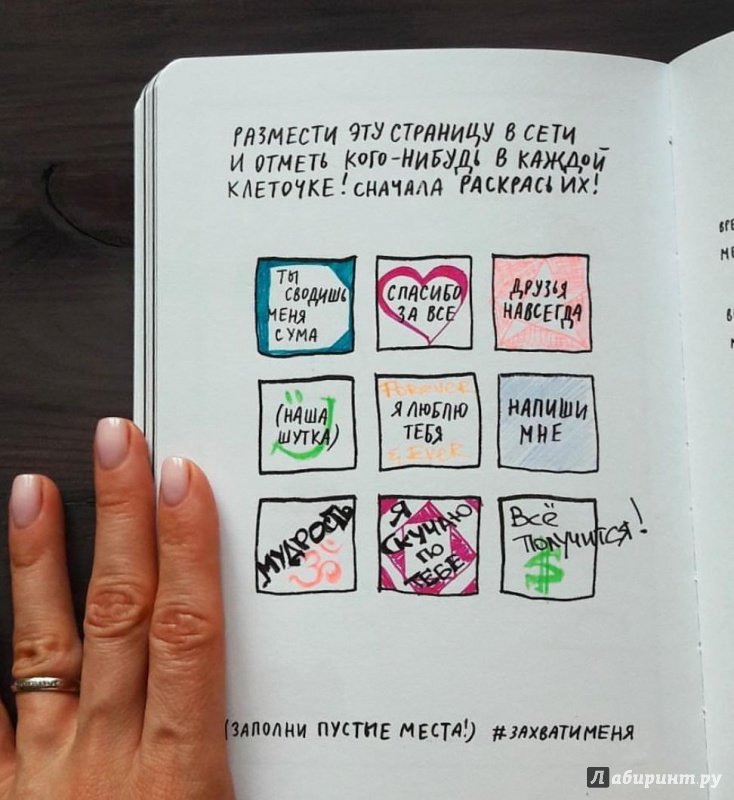 РАЗМЕСТИ ЭТУ СТРАНИЦУ В СЕТИ
И ОТМЕТЬ КОГО-НИБУДЬ В КАЖДОЙ
КЛЕТОЧКЕ! СНАЧАЛА РАСКРАСЬ ИХ!
ТЫ
СВОДИШЬ
МЕНЯ
С УМА
СПАСИБО
ЗА ВСЕ
ДРУЗЬЯ
НАВСЕГДА
(НАША
ШУТКА)
FOREVER
Я ЛЮБЛЮ
ТЕБЯ
& EVER
НАПИШИ
МНЕ
МУДРОСТЬ
ॐ
Я
СКУЧАЮ
ПО
ТЕБЕ
Всё
получится!
$
(ЗАПОЛНИ ПУСТЫЕ МЕСТА!) #ЗАХВАТИМЕНЯ
Лабиринт.ру